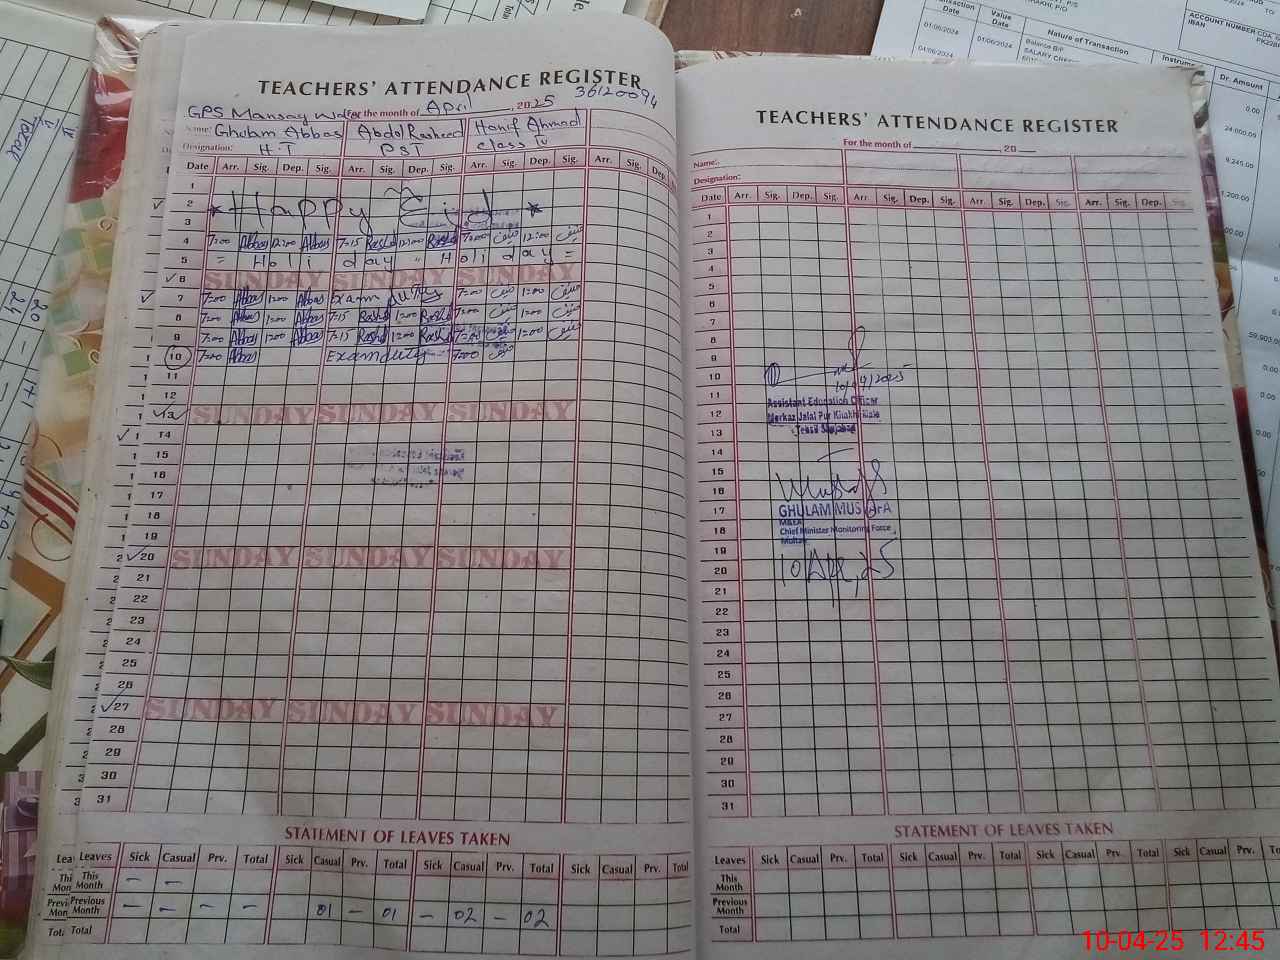 TEACHERS' ATTENDANCE REGISTER
36120094
GPS Mansay For the month of April, 2025
Name: Ghulam Abbas Abdol Rasheed Hanif Ahmad
Designation: H.T PST Class IV
Date Arr. Sig. Dep. Sig. Arr. Sig. Dep. Sig. Arr. Sig. Dep. Sig. Arr. Sig. Dep.
1
2 * Happy Eid *
3
4 7:00 Abbas 12:00 Abbas 7:15 Rashd 12:00 Rashd 7:00 حنیف 12:00 حنیف
5 = Holi day " Holi day =
6 SUNDAY SUNDAY SUNDAY
7 7:00 Abbas 1:00 Abbas Exam duty 7:00 حنیف 1:00 حنیف
8 7:00 Abbas 1:00 Abbas 7:15 Rashd 1:00 Rashd 7:00 حنیف 1:00 حنیف
9 7:00 Abbas 1:00 Abbas 7:15 Rashd 1:00 Rashd 7:00 حنیف 1:00 حنیف
10 7:00 Abbas Exam duty 7:00 حنیف
11
12
13 SUNDAY SUNDAY SUNDAY
14
15
16
17
18
19
20 SUNDAY SUNDAY SUNDAY
21
22
23
24
25
26
27 SUNDAY SUNDAY SUNDAY
28
29
30
31
STATEMENT OF LEAVES TAKEN
Leaves Sick Casual Prv. Total Sick Casual Prv. Total Sick Casual Prv. Total Sick Casual Prv. Total
This Month – –
Previous Month – – – – 01 – 01 – 02 – 02
Total
TEACHERS' ATTENDANCE REGISTER
For the month of , 20
Name:
Designation:
Date Arr. Sig. Dep. Sig. Arr. Sig. Dep. Sig. Arr. Sig. Dep. Sig. Arr. Sig. Dep. Sig.
1
2
3
4
5
6
7
8
9
10 10/04/2025
11 Assistant Education Officer
12 Merkaz Jalal Pur Khakhi Male
13
14
15
16
17 GHULAM MUSTAFA
M&EA
18 Chief Minister Monitoring Force
Multan
19
20 10 Apr, 25
21
22
23
24
25
26
27
28
29
30
31
STATEMENT OF LEAVES TAKEN
Leaves Sick Casual Prv. Total Sick Casual Prv. Total Sick Casual Prv. Total Sick Casual Prv.
This Month
Previous Month
Total
Transaction Date Value Date Nature of Transaction Dr. Amount
ACCOUNT NUMBER
IBAN
01/06/2024 01/06/2024 Balance B/F
04/06/2024
0.00
24,000.00
9,245.00
0.00
0.00
0.00
0.00
10-04-25 12:45